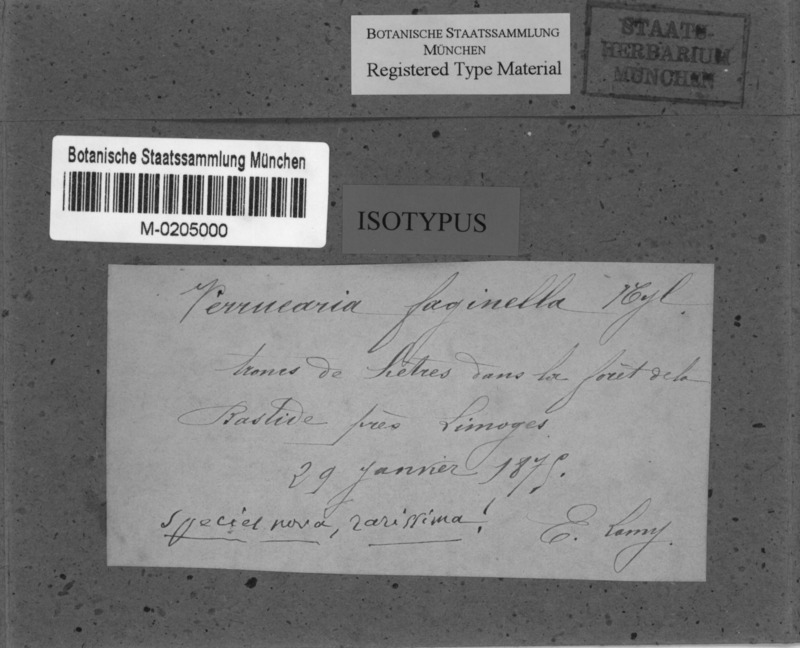 BOTANISCHE STAATSSAMMLUNG
MÜNCHEN
Registered Type Material
STAATS-
HERBARIUM
MÜNCHEN
Botanische Staatssammlung München
M-0205000
ISOTYPUS
Verrucaria faginella Nyl.
troncs de hêtres dans la forêt de la
Bastide près Limoges
29 janvier 1875.
species nova, rarissima!
E. Lamy.